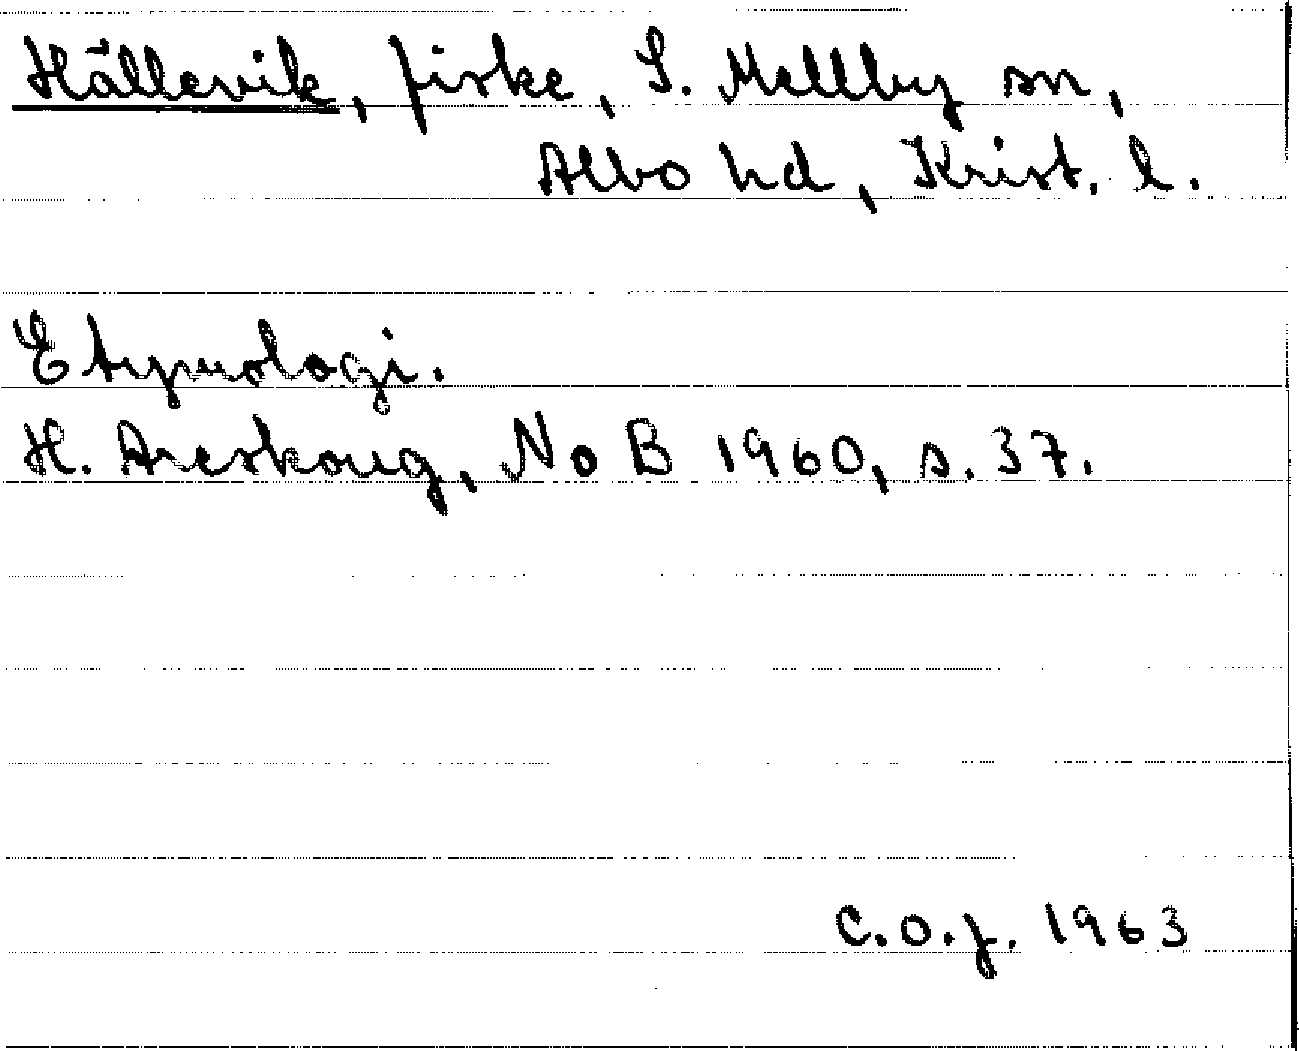 Hällevik, fiske, S. Mellby sn,
Albo hd, Krist. l.
Etymologi.
H. Areskoug, NoB 1960, s. 37.
C.O.J. 1963